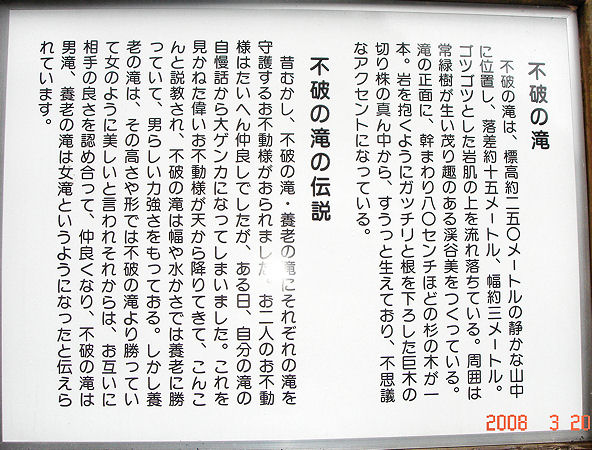 不破の滝
不破の滝は、標高約二五〇メートルの静かな山中
に位置し、落差約十五メートル、幅約三メートル。
ゴツゴツとした岩肌の上を流れ落ちている。周囲は
常緑樹が生い茂り趣のある渓谷美をつくっている。
滝の正面に、幹まわり八〇センチほどの杉の木が一
本。岩を抱くようにガッチリと根を下ろした巨木の
切り株の真ん中から、すうっと生えており、不思議
なアクセントになっている。
不破の滝の伝説
昔むかし、不破の滝・養老の滝にそれぞれの滝を
守護するお不動様がおられました。お二人のお不動
様はたいへん仲良しでしたが、ある日、自分の滝の
自慢話から大ゲンカになってしまいました。これを
見かねた偉いお不動様が天から降りてきて、こんこ
んと説教され、不破の滝は幅や水かさでは養老に勝
っていて、男らしい力強さをもっておる。しかし養
老の滝は、その高さや形では不破の滝より勝ってい
て女のように美しいと言われそれからは、お互いに
相手の良さを認め合って、仲良くなり、不破の滝は
男滝、養老の滝は女滝というようになったと伝えら
れています。
2008 3 20